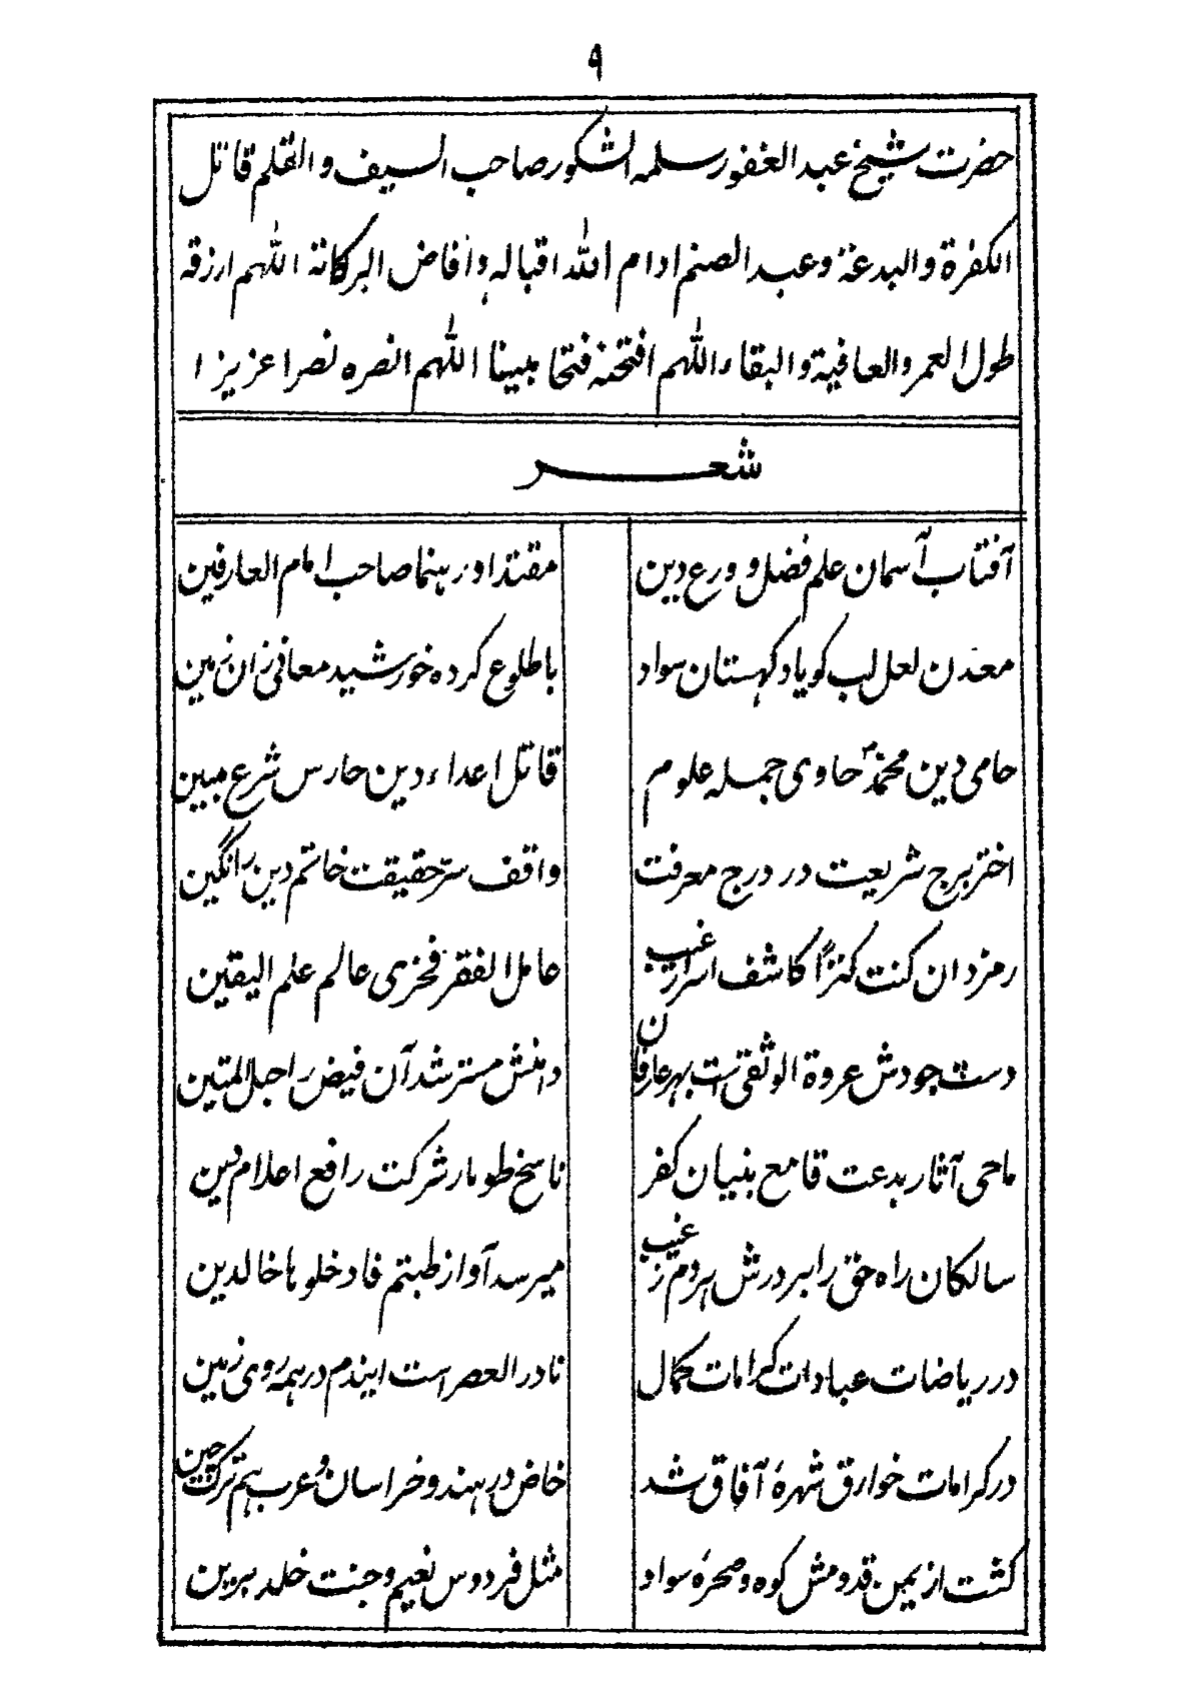 ۹
حضرت شیخ عبد الغفور سلمہ الشکور صاحب السیف و القلم قاتل
الکفرة و البدعة و عبد الصنم ادام الله اقباله و افاض البرکاتہ اللهم ارزقه
طول العمر و العافیة و البقاء اللهم افتحنہ فتحا مبینا اللهم انصره نصرا عزیزا
شعر
آفتاب آسمان علم فضل و ورع دین مقتدا و رہنما صاحب امام العارفین
معدن لعل لب کو یاد کہستان سواد باطلوع کرده خورشید معانی زان زمین
حامی دین محمدؐ حاوی جملہ علوم قاتل اعداء دین حارس شرع مبین
اختر برج شریعت در درج معرفت واقف سرّ حقیقت خاتم دین را نگین
رمزدان کنت کنزاً کاشف اسرار غیب عامل الفقر فخری عالم علم الیقین
دست جودش عروة الوثقی است بہر عارفان دامنش مسترشد آن فیض را حبل المتین
ماحی آثار بدعت قامع بنیان کفر ناسخ طومار شرکت رافع اعلام دین
سالکان راه حق را بر درش ہر دم ز غیب میرسد آواز طبتم فادخلوہا خالدین
در ریاضات عبادات کرامات کمال نادر العصر است ایندم در ہمہ روی زمین
در کرامات خوارق شہرۂ آفاق شد خاص در ہند و خراسان و عرب ہم ترک چین
گشت از یمن قدومش کوه و صحرۂ سواد مثل فردوس نعیم و جنت خلد برین